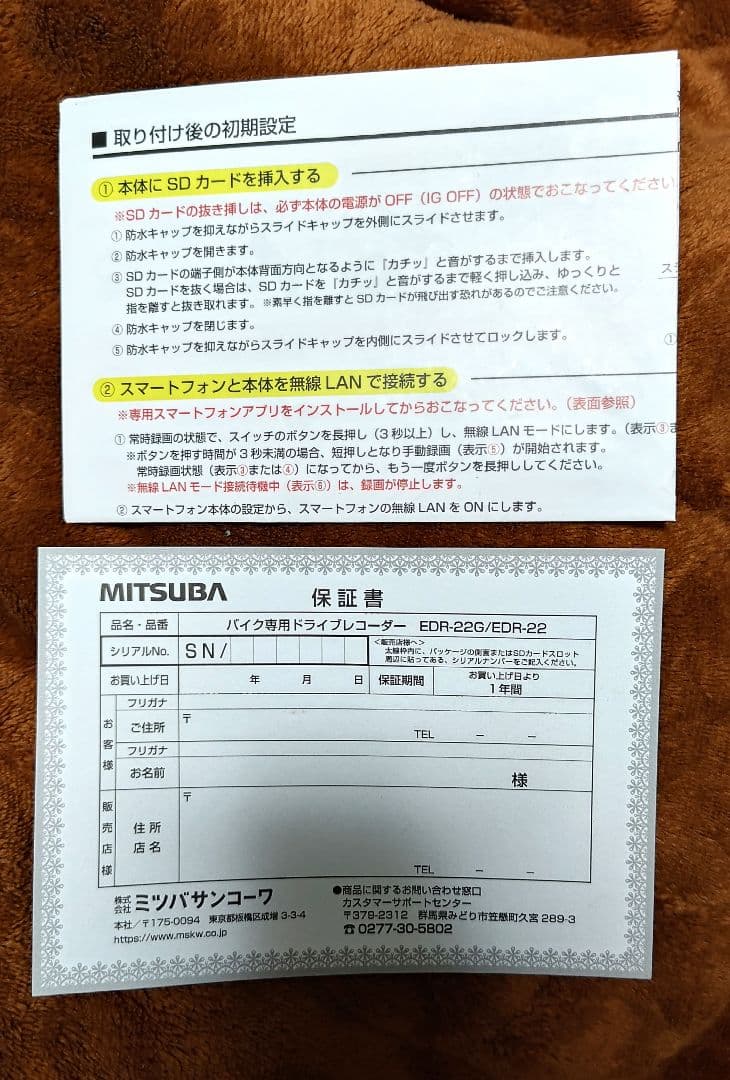 ■ 取り付け後の初期設定
① 本体に SD カードを挿入する
※SD カードの抜き挿しは、必ず本体の電源が OFF（IG OFF）の状態でおこなってください
① 防水キャップを抑えながらスライドキャップを外側にスライドさせます。
② 防水キャップを開きます。
③ SD カードの端子側が本体背面方向となるように『カチッ』と音がするまで挿入します。
SD カードを抜く場合は、SD カードを『カチッ』と音がするまで軽く押し込み、ゆっくりと
指を離すと抜き取れます。※素早く指を離すと SD カードが飛び出す恐れがあるのでご注意ください。
④ 防水キャップを閉じます。
⑤ 防水キャップを抑えながらスライドキャップを内側にスライドさせてロックします。
①
② スマートフォンと本体を無線 LAN で接続する
※専用スマートフォンアプリをインストールしてからおこなってください。（表面参照）
① 常時録画の状態で、スイッチのボタンを長押し（3 秒以上）し、無線 LAN モードにします。（表示③ま
※ボタンを押す時間が 3 秒未満の場合、短押しとなり手動録画（表示⑤）が開始されます。
常時録画状態（表示③または④）になってから、もう一度ボタンを長押ししてください。
※無線 LAN モード接続待機中（表示⑥）は、録画が停止します。
② スマートフォン本体の設定から、スマートフォンの無線 LAN を ON にします。
MITSUBA 保証書
品名・品番 バイク専用ドライブレコーダー EDR-22G/EDR-22
シリアルNo. SN/ <販売店様へ>
太線枠内に、パッケージの側面またはSDカードスロット
周辺に貼ってある、シリアルナンバーをご記入ください。
お買い上げ日 年 月 日 保証期間 お買い上げ日より
1年間
お客様 フリガナ
ご住所 〒
TEL － －
フリガナ
お名前 様
販売店様 住所
店名 〒
TEL － －
株式会社 ミツバサンコーワ
本社／〒175-0094 東京都板橋区成増 3-3-4
https://www.mskw.co.jp
●商品に関するお問い合わせ窓口
カスタマーサポートセンター
〒379-2312 群馬県みどり市笠懸町久宮 289-3
☎ 0277-30-5802